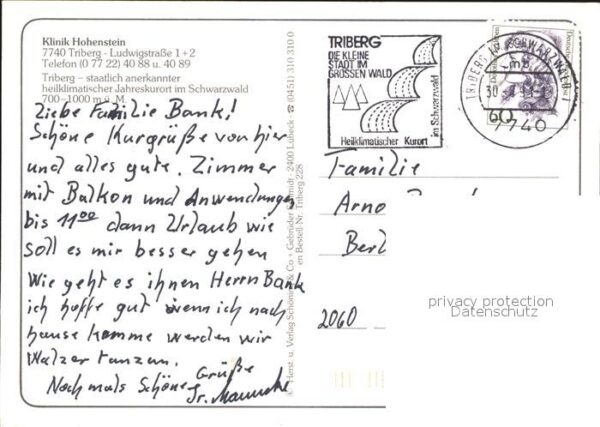 Klinik Hohenstein
7740 Triberg - Ludwigstraße 1+2
Telefon (0 77 22) 40 88 u. 40 89
Triberg – staatlich anerkannter
heilklimatischer Jahreskurort im Schwarzwald
700–1000 m ü. M.
Liebe Familie Bank!
Schöne Kurgrüße von hier
und alles gute. Zimmer
mit Balkon und Anwendungen
bis 11 00 dann Urlaub wie
soll es mir besser gehen
Wie geht es ihnen Herrn Bank
ich hoffe gut wenn ich nach
hause komme werden wir
Walzer tanzen.
Noch mals Schöne Grüße
Herst. u. Verlag Schöning & Co + Gebrüder Schmidt · 2400 Lübeck · ☎ (0451) 310 310 0
en Bestell-Nr. Triberg 228
TRIBERG
DIE KLEINE
STADT IM
GROSSEN WALD
im Schwarzwald
Heilklimatischer Kurort
TRIBERG IM SCHWARZWALD 1
mb
7740
60
Familie
Arno
Berl
2060
privacy protection
Datenschutz